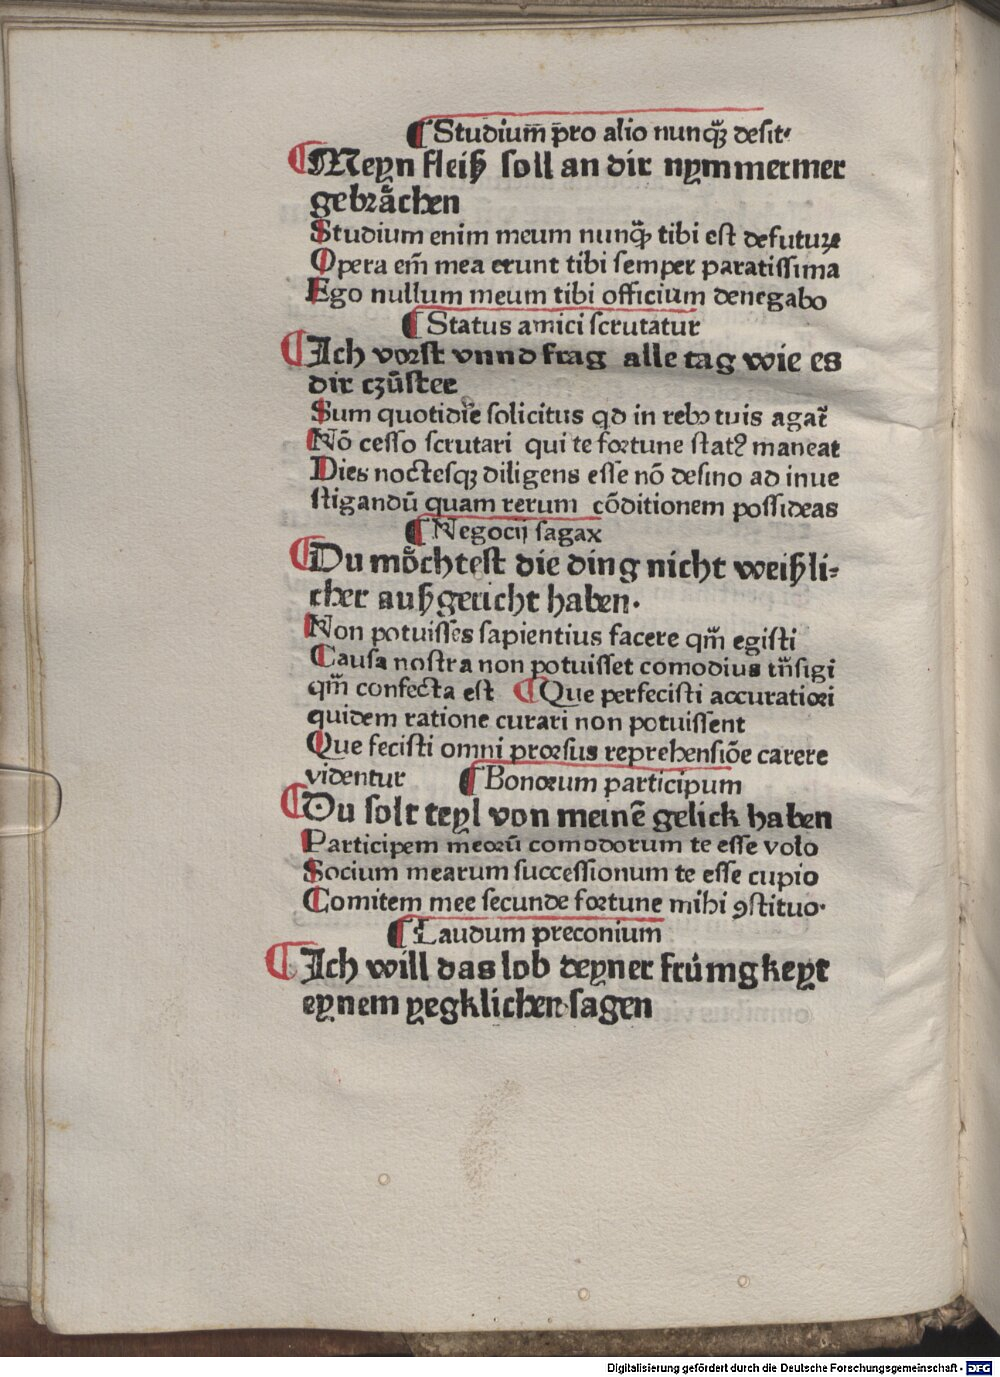 ¶ Studium̄ ꝑro alio nunqᷓꝫ desit·
¶ Meyn fleiß soll an dir nymmermer
gebråchen
Studium enim meum nunqᷓꝫ tibi est defuturꝝ
Opera em̄ mea erunt tibi semper paratissima
Ego nullum meum tibi officium denegabo
¶ Status amici scrutatur
¶ Ich vorst vnnd frag alle tag wie es
dir czůstee
Sum quotidie solicitus qd in rebꝰ tuis agat̄
Nō cesso scrutari qui te fortune statꝰ maneat
Dies noctesqꝫ diligens esse nō desino ad inue
stigandū quam rerum cōditionem possideas
¶ Negocij sagax
¶ Du mo̊chtest die ding nicht weißli⸗
cher außgericht haben·
Non potuisses sapientius facere qm̄ egisti
Causa nostra non potuisset comodius trn̄sigi
qm̄ confecta est ¶ Que perfecisti accuratiori
quidem ratione curari non potuissent
Que fecisti omni prorsus reprehensiōe carere
videntur ¶ Bonorum participum
¶ Du solt teyl von meinē gelick haben
Participem meorū comodorum te esse volo
Socium mearum successionum te esse cupio
Comitem mee secunde fortune mihi ꝯstituo·
¶ Laudum preconium
¶ Ich will das lob deyner frůmgkeyt
eynem yegklichen sagen
Digitalisierung gefördert durch die Deutsche Forschungsgemeinschaft - DFG